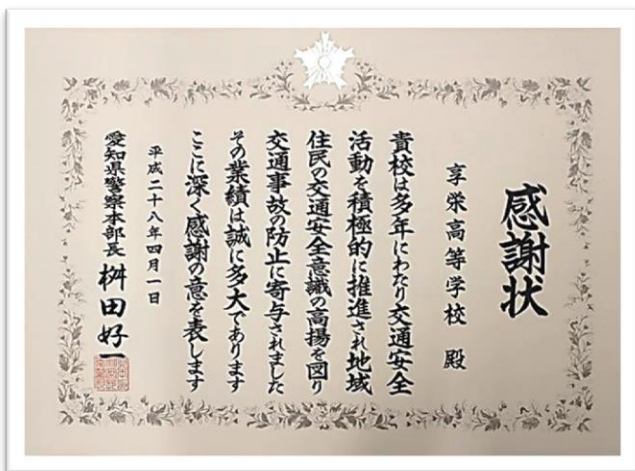 感謝状
享栄高等学校 殿
貴校は多年にわたり交通安全
活動を積極的に推進され地域
住民の交通安全意識の高揚を図り
交通事故の防止に寄与されました
その業績は誠に多大であります
ここに深く感謝の意を表します
平成二十八年四月一日
愛知県警察本部長 桝田好一